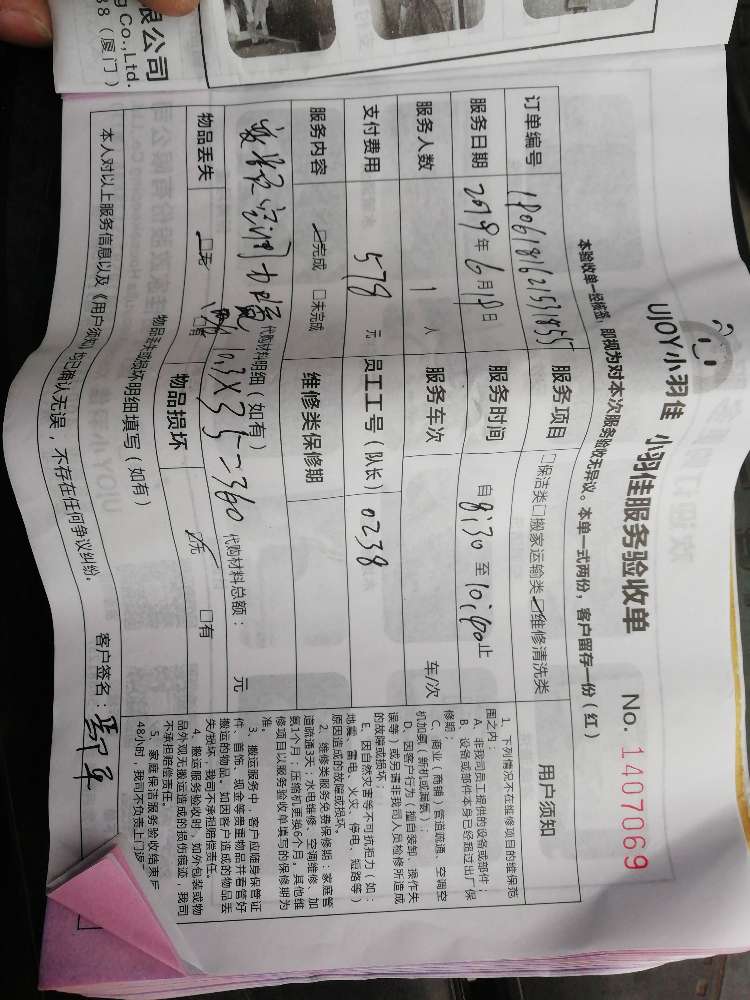 限公司
g Co.,Ltd.
88（厦门）
UJOY小羽佳 小羽佳服务验收单 No. 1407069
本验收单一经核签，即视为对本次服务验收无异议。本单一式两份，客户留存一份（红）
订单编号
服务项目 □保洁类□搬家运输类☑维修清洗类
服务日期 2019年6月19日
服务时间 自8:30至10:40止
服务人数 1 人
服务车次 车/次
支付费用 578 元
员工工号（队长） 0238
服务内容 ☑完成 □未完成
维修类保修期
代购材料明细（如有）
0.3X35=360 代购材料总额： 元
物品丢失 □无 □有
物品损坏 ☑无 □有
物品丢失或损坏明细填写（如有）
本人对以上服务信息以及《用户须知》均已确认无误，不存在任何争议纠纷。
客户签名：
用户须知
1、下列情况不在维修项目的维保范
围之内：
A、非我司员工提供的设备或部件；
B、设备或部件本身已经超过出厂保
修期；
C、商业（商铺）管道疏通、空调空
机加氨（新机或漏氨）；
D、因客户行为（擅自装卸、操作失
误等）或另请非我司人员检修所造成
的故障或损坏；
E、因自然灾害等不可抗拒力（如：
地震、雷电、火灾、停电、短路等）
原因造成的故障或损坏。
2、维修类服务免费保修期：家庭管
道疏通3天，水电维修、空调维修、加
氨1个月，压缩机更换6个月。其他维
修项目以服务验收单填写的保修期为
准。
3、搬运服务中，客户应随身保管证
件、首饰、现金等贵重物品并看管好
搬运的物品。如因客户造成的物品丢
失/损坏，我司不承担赔偿责任。
4、搬运服务验收时，如外包装或物
品外观无搬运造成的损伤痕迹，我司
不承担赔偿责任。
5、家庭保洁服务验收结束后
48小时，我司不负责上门返